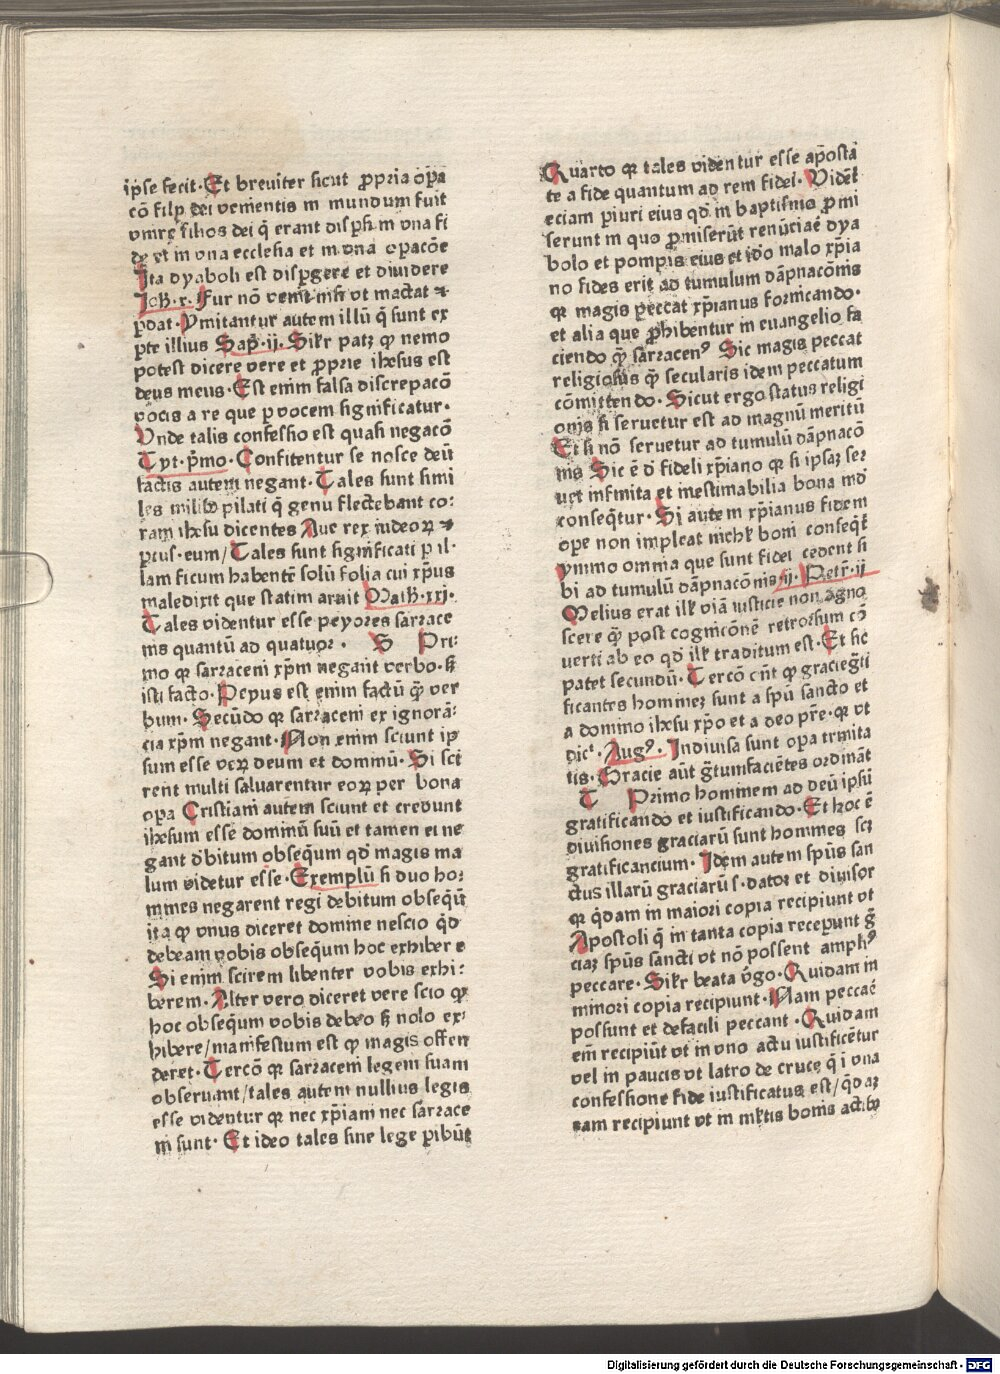 ip̄se fecit· Et breviter sicut ꝓpria oꝑa
cō filij dei venientis in mundum fuit
vnire filios dei q̄ erant disꝑsi in vna fi
de et in vna ecclesia et in vna oꝑacōe
Ita dyaboli est disꝑgere et diuidere
Joh̄·x· Fur nō venit nisi vt mactat ⁊
ꝑdat· Ymitantur autem illū q̄ sunt ex
ꝑte illius Sap̄·ii· Silr patꝫ ꝙ nemo
potest dicere vere et ꝓprie ihesus est
deus meus· Est enim falsa discrepacō
vocis a re que ꝑ vocem significatur·
Vnde talis confessio est quasi negacō
Tyt· p̄mo· Confitentur se nosce deū
factis autem negant· Tales sunt simi
les militibꝫ pilati q̄ genu flectebant co⸗
ram ihesu dicentes Aue rex iudeoꝝ ⁊
ꝑcus· eum/ Tales sunt significati ꝑ il⸗
lam ficum habentē solū folia cui xp̄us
maledixit que statim aruit Math̄·xxj·
Tales videntur esse peyores sarrace
nis quantū ad quatuor· S Pri⸗
mo ꝙ sarraceni xp̄m negant verbo· sꝫ
isti facto· Peyus est enim factū ꝙ̄ ver
bum· Secūdo ꝙ sarraceni ex ignorā⸗
cia xp̄m negant· Non enim sciunt ip
sum esse veꝝ deum et dominū· Si sci
rent multi saluarentur eoꝝ per bona
oꝑa Cristiani autem sciunt et credunt
ihesum esse dominū suū et tamen ei ne
gant debitum obseq̄um qd̄ magis ma
lum videtur esse· Exemplū si duo ho⸗
mines negarent regi debitum obseq̄ū
ita ꝙ vnus diceret domine nescio q̄d
debeam vobis obseq̄um hoc exhibere
Si enim scirem libenter vobis exhi⸗
berem· Alter vero diceret vere scio ꝙ
hoc obseq̄um vobis debeo sꝫ nolo ex⸗
hibere/manifestum est ꝙ magis offen
deret· Tercō ꝙ sarraceni legem suam
obseruant/tales autem nullius legis
esse videntur ꝙ nec xp̄iani nec sarrace
ni sunt· Et ideo tales sine lege ꝑibūt
Quarto ꝙ tales videntur esse ap̄osta
te a fide quantum ad rem fidei· Viden̄t
eciam ꝑiuri eius qd̄ in baptismo ꝓmi
serunt in quo ꝓmiserūt renūciae dya
bolo et pompis eius et ido malo xp̄ia
no fides erit ad tumulum dāpnacōnis
ꝙ magis peccat xp̄ianus fornicando·
et alia que ꝓhibentur in euangelio fa
ciendo ꝙ̄ sarracenꝰ Sic magis peccat
religiosus ꝙ̄ secularis idem peccatum
cōmittendo· Sicut ergo status religi
onis si seruetur est ad magnū meritū
Et si nō seruetur ad tumulū dāpnacō
nis Sic ē d̄ fideli xp̄iano ꝙ si ipsaꝫ ser
uet infinita et inestimabilia bona ind̄
conseq̄tur· Si autem xp̄ianus fidem
ope non impleat nichil boni conseq̄t
ymmo omnia que sunt fidei cedent si
bi ad tumulū dāpnacōnis ij· Petr̄·ij
Melius erat ill' viā iusticie non agno
scere ꝙ̄ post cognicōnē retrorsum cō
uerti ab eo qd̄ ill' traditum est· Et sic
patet secundū· Tercō cn̄t ꝙ gracieg̃ti
ficantes hominez sunt a spū sancto et
a domino ihesu xp̄o et a deo pr̄e· ꝙ vt
dic̄t· Augꝰ· Indiuisa sunt opa trinita
tis· Gracie aūt g̃tumfaciētes ordināt
T Primo hominem ad deū ipsū
gratificando et iustificando· Et hoc ē
diuisiones graciarū sunt homines scꝫ
gratificancium· Idem autem spūs san
ctus illarū graciarū s· dator et diuisor
ꝙ q̄dam in maiori copia recipiunt vt
Apostoli q̄ in tanta copia receperunt g̃
ciaꝫ spūs sancti vt nō possent amplꝰ
peccare· Silr beata v̄go· Quidam in
minori copia recipiunt· Nam peccaē
possunt et defacili peccant· Quidam
em̄ recipiūt vt in vno actu iustificētur
vel in paucis vt latro de cruce q̄ i vna
confessione fide iustificatus est/q̄daꝫ
eam recipiunt vt in ml̄tis bonis actibꝫ
Digitalisierung gefördert durch die Deutsche Forschungsgemeinschaft - DFG